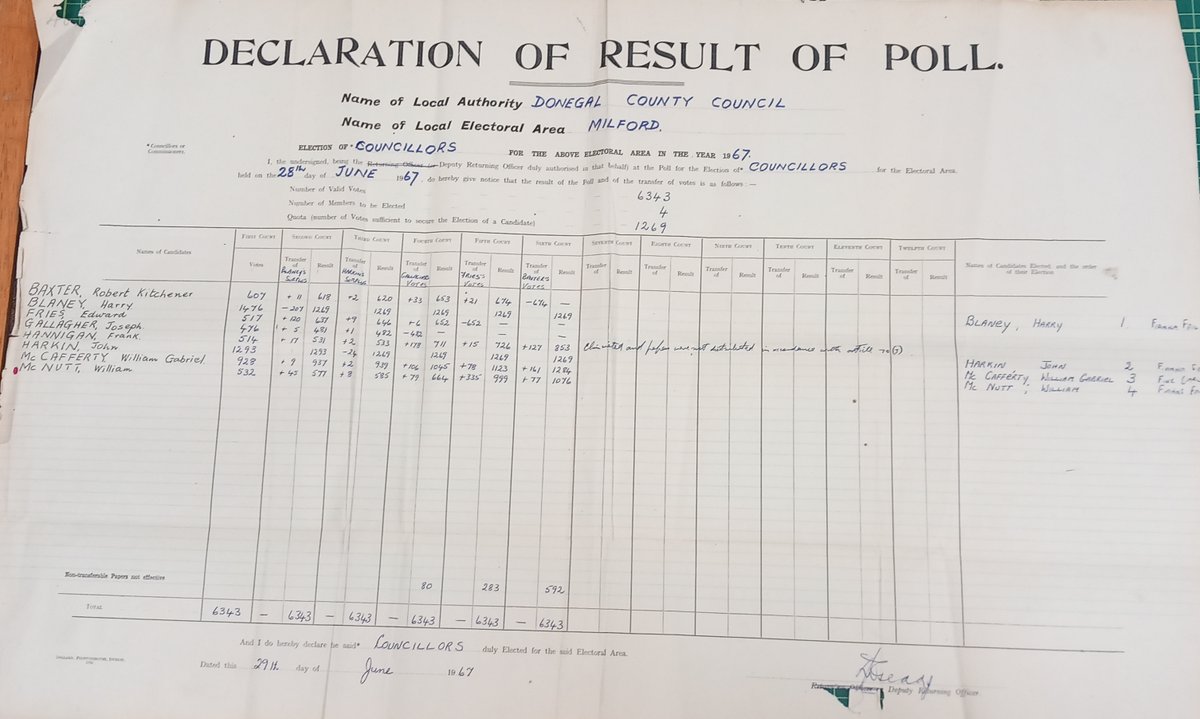 DECLARATION OF RESULT OF POLL.
Name of Local Authority DONEGAL COUNTY COUNCIL
Name of Local Electoral Area MILFORD.
* Councillors or Commissioners.
ELECTION OF* COUNCILLORS FOR THE ABOVE ELECTORAL AREA IN THE YEAR 1967.
I, the undersigned, being the Returning Officer (or Deputy Returning Officer duly authorised in that behalf) at the Poll for the Election of* COUNCILLORS for the Electoral Area.
held on the 28th day of JUNE 1967, do hereby give notice that the result of the Poll and of the transfer of votes is as follows:—
Number of Valid Votes 6343
Number of Members to be Elected 4
Quota (number of Votes sufficient to secure the Election of a Candidate) 1269
Names of Candidates First Count Second Count Third Count Fourth Count Fifth Count Sixth Count Seventh Count Eighth Count Ninth Count Tenth Count Eleventh Count Twelfth Count Names of Candidates Elected, and the order of their Election
Votes Transfer of BLANEY'S SURPLUS Result Transfer of HARKIN'S SURPLUS Result Transfer of Votes Result Transfer of FRIES'S Votes Result Transfer of BAXTER'S Votes Result Transfer of Result Transfer of Result Transfer of Result Transfer of Result Transfer of Result Transfer of Result
BAXTER, Robert Kitchener 607 +11 618 +2 620 +33 653 +21 674 -674 —
BLANEY, Harry 1476 -207 1269 1269 1269 1269 1269 BLANEY, HARRY 1
FRIES, Edward 517 +120 637 +9 646 +6 652 -652 — —
GALLAGHER, Joseph. 476 +5 481 +1 482 -482 — — —
HANNIGAN, Frank. 514 +17 531 +2 533 +178 711 +15 726 +127 853 Eliminated and papers were not distributed in accordance with article 70(7)
HARKIN, John 1293 1293 -24 1269 1269 1269 1269 HARKIN JOHN 2
McCAFFERTY, William Gabriel 928 +9 937 +2 939 +106 1045 +78 1123 +161 1284 McCAFFERTY, WILLIAM GABRIEL 3
McNUTT, William 532 +45 577 +8 585 +79 664 +335 999 +77 1076 McNUTT, WILLIAM 4
Non-transferable Papers not effective 80 283 592
TOTAL 6343 — 6343 — 6343 — 6343 — 6343 — 6343
And I do hereby declare the said* COUNCILLORS duly Elected for the said Electoral Area.
Dated this 29th day of June 1967
Returning Officer (or Deputy Returning Officer